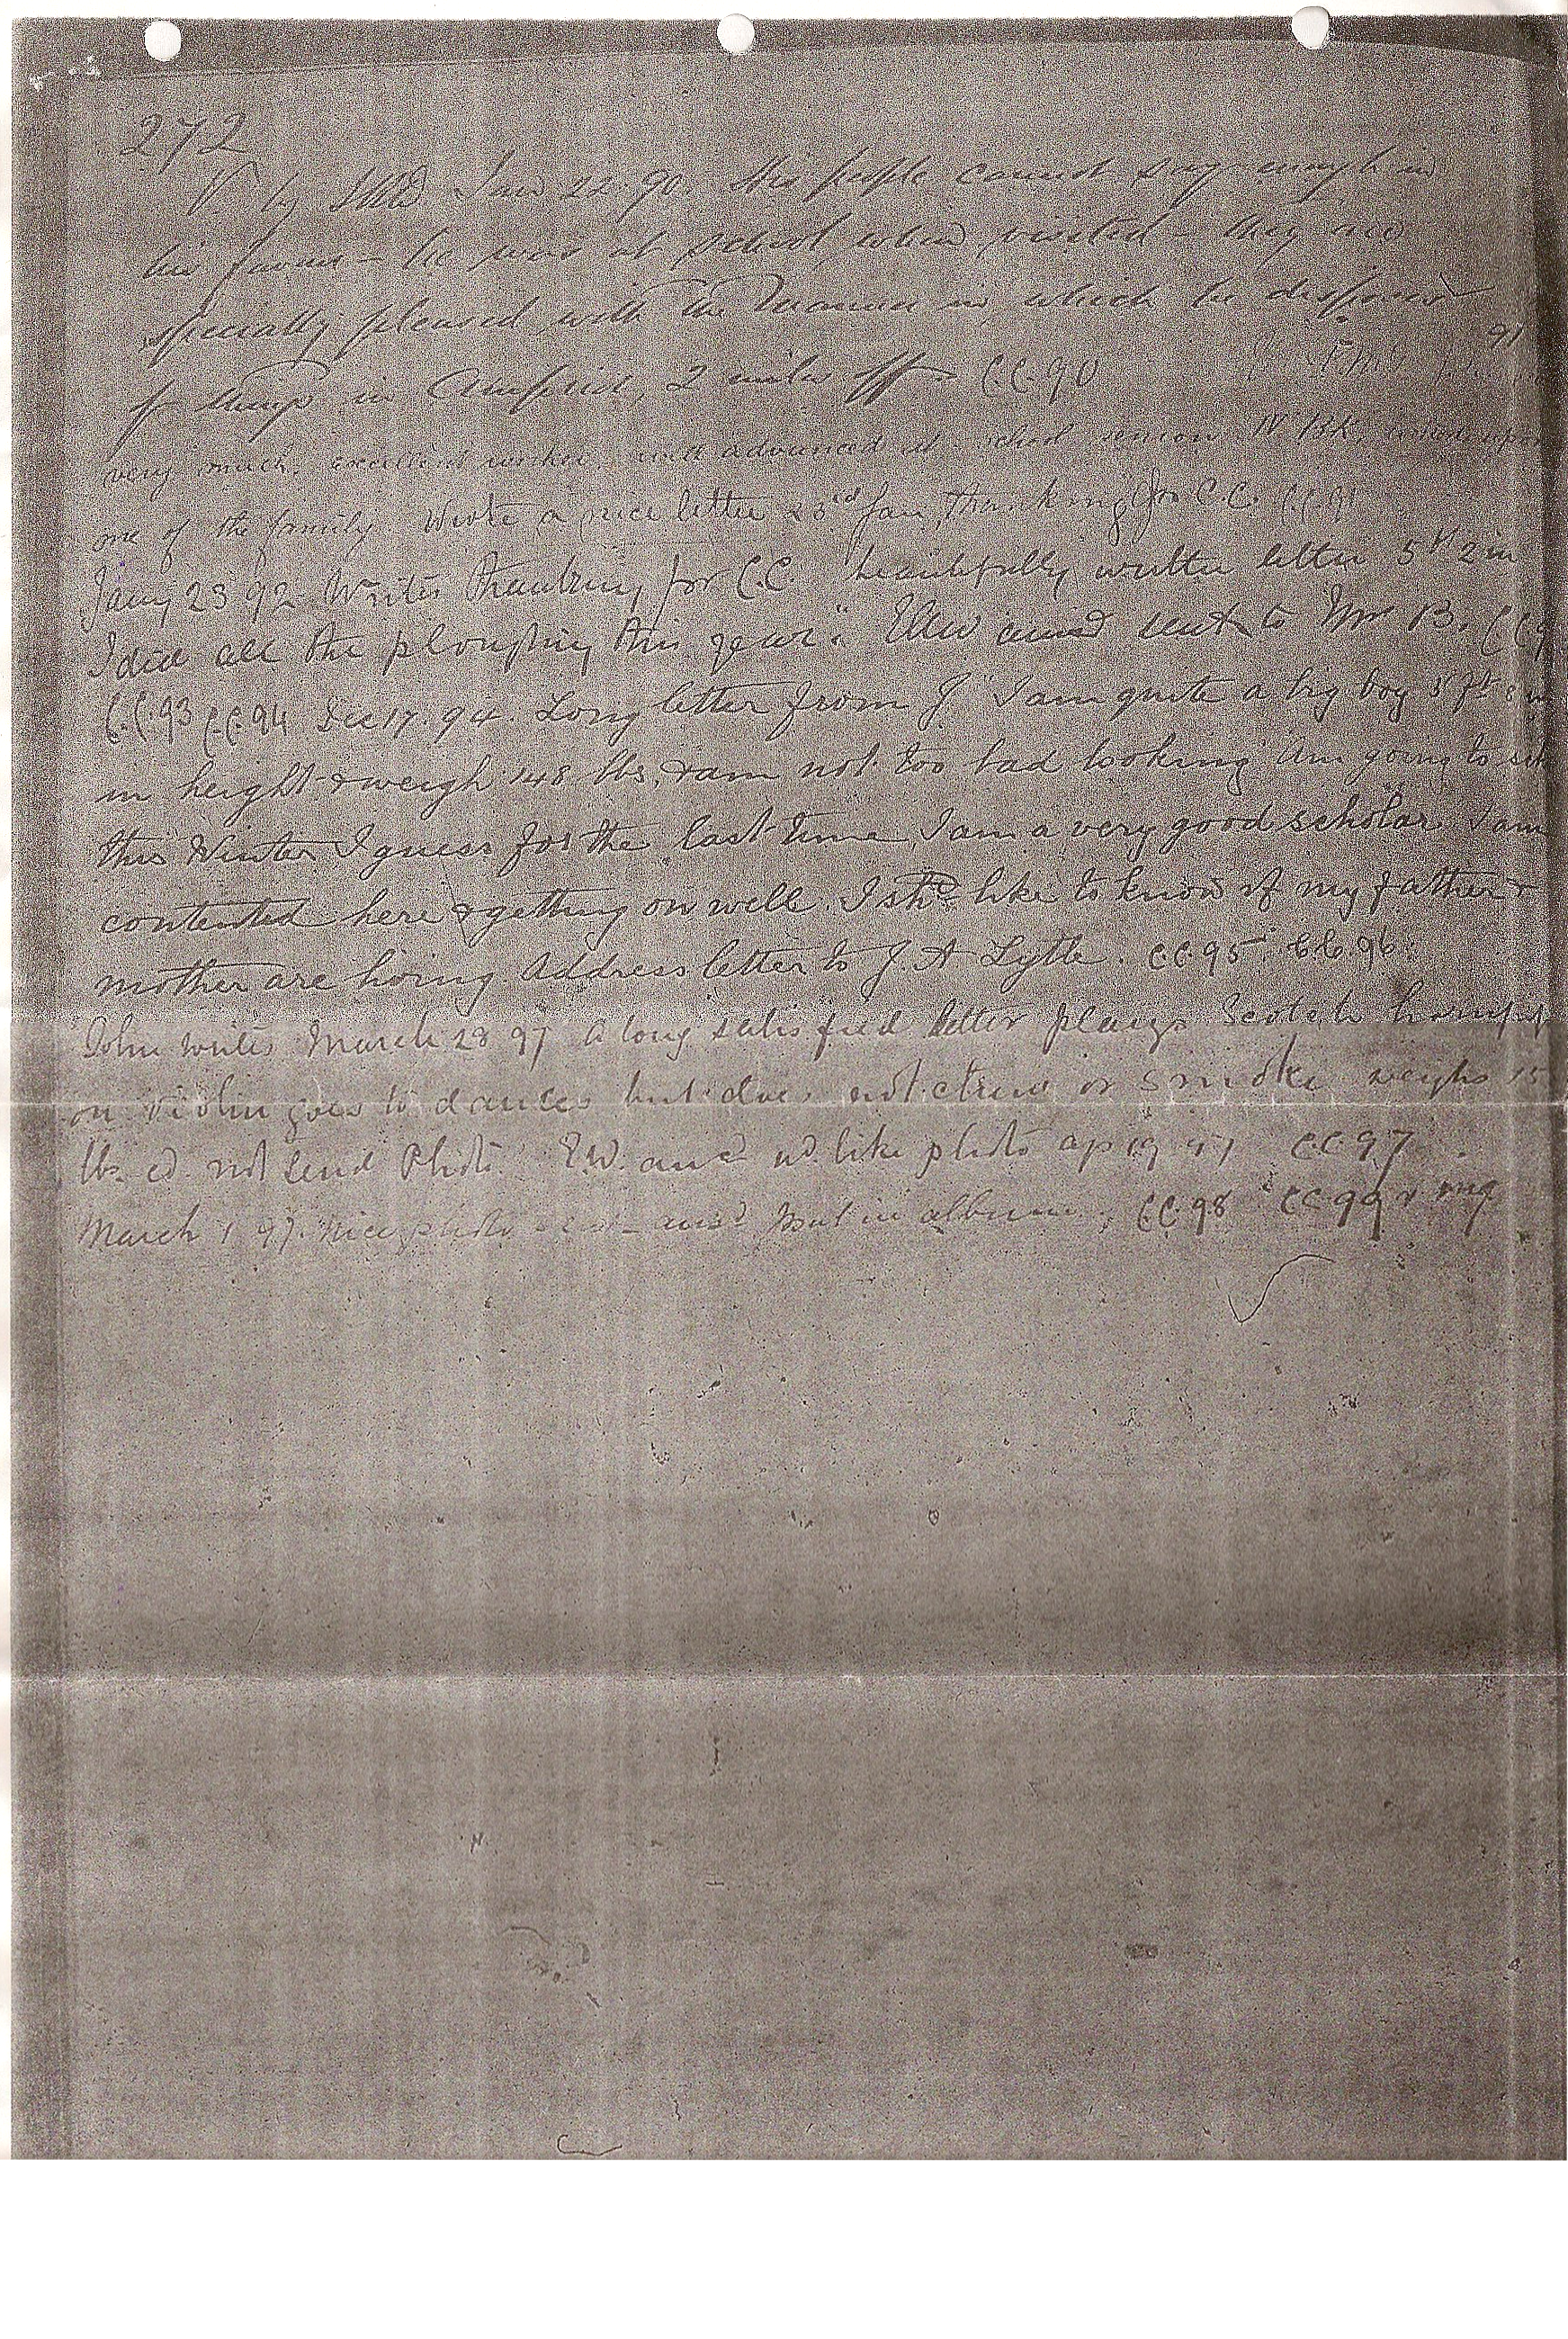 272
V. by Jan 22 90. His people cannot say enough in
his favour - he was at school when visited - they are
specially pleased with the manner in which he disposes
of things in 2 miles off CC.90 91
very much. excellent worker. well advanced at school senior IV Bk.
one of the family. Wrote a nice letter 23rd Jan thanking for C.C. CC 91
Jany 23 92 Writes thanking for C.C. beautifully written letter 5 ft 2 in
I did all the ploughing this year." sent to Mr B. CC 9
C.C.93 C.C.94 Dec 17. 94. Long letter from J "I am quite a big boy 5 ft 8
in height & weigh 148 lbs, & am not too bad looking Am going to sch
this Winter I guess for the last time, I am a very good scholar I am
contented here & getting on well. I shd like to know if my father &
mother are living. Address letter to J. A Lytle. CC.95. C.C.96.
John writes March 28 97 A long satisfied letter plays Scotch
on violin goes to dances but does not chew or smoke weighs 15
lbs. cd. not send Photo. E.W. ansd wd. like photo ap 19 97 CC 97.
March 1 97. Nice photo ansd put in album. CC.98 CC 99 & mg